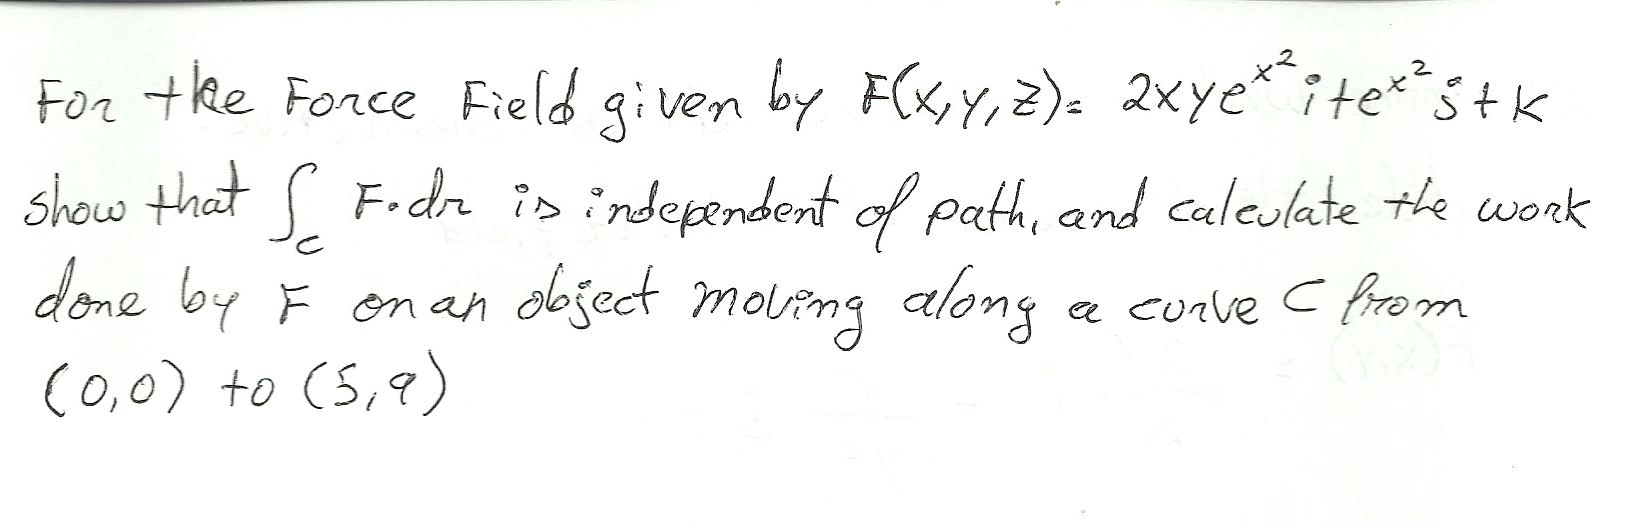 For the Force Field given by F(x,y,z)= 2xye^x² i+e^x² j+k
show that ∫_c F.dr is independent of path, and calculate the work
done by F on an object moving along a curve C from
(0,0) to (5,9)